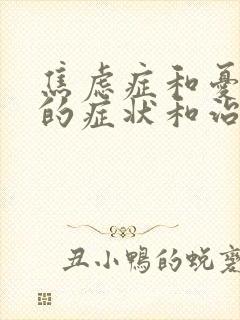 焦虑症和憂
的症状和治
丑小鴨的蜕